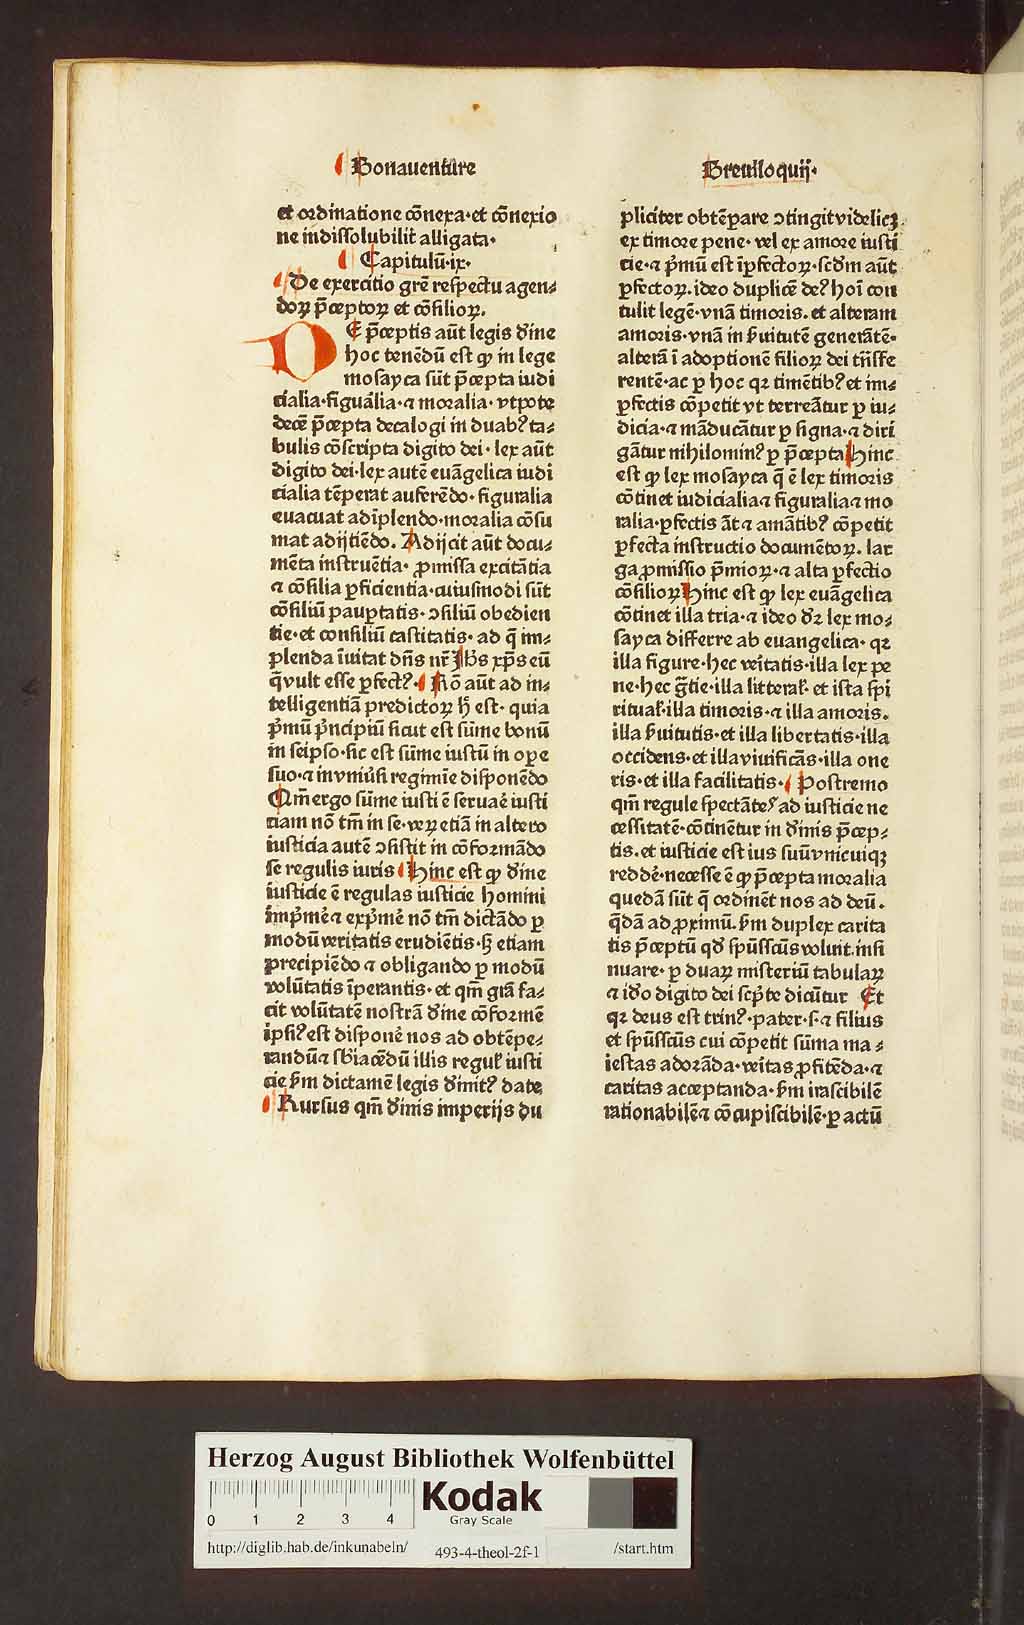 Bonauenture
Breuiloquij·
et ordinatione cõnexa·et cõnexio
ne indissolubilit̃ alligata·
Capitulũ·ix·
De exercitio grẽ respectu agen⸗
doꝝ p̃ceptoꝝ et cõsilioꝝ.
DE p̃ceptis aũt legis diũine
hoc tenẽdũ est ꝙ in lege
mosayca sũt p̃cepta iudi
cialia·figurãlia·⁊ moralia·vtpote
decẽ p̃cepta decalogi in duabꝰ ta⸗
bulis cõscripta digito dei·lex aũt
digito dei·lex autẽ euãgelica iudi
cialia tẽperat auferẽdo·figuralia
euacuat adĩplendo·moralia cõsu
mat adijtiẽdo. Adijcit aũt docu⸗
mẽta instruẽtia·ꝓmissa excitãtia
⁊ cõsilia ꝑficientia·cuiusmodi sũt
cõsiliũ pauꝑtatis·ↄsiliũ obedien
tie·et consiliũ castitatis·ad q̃ im⸗
plenda ĩuitat dñs nr̃ Jhs xp̃s eũ
q̃ vult esse ꝑfectꝰ· Rõ aũt ad in⸗
telligentiã predictoꝝ h̃ est·quia
p̃mũ p̃ncipiũ sicut est sũme bonũ
in seipso·sic est sũme iustũ in oꝑe
suo·⁊ in vniũsi regimĩe disponẽdo
Qm̃ ergo sũme iusti ẽ seruaẽ iusti
ciam nõ tm̃ in se·veꝝ etiã in altero
iusticia autẽ ↄsistit in cõformãdo
se regulis iuris Hinc est ꝙ diũine
iusticie ẽ regulas iusticie homini
imp̃mẽ ⁊ exp̃mẽ nõ tm̃ dictãdo ꝑ
modũ veritatis erudiẽtis·s̃ etiam
precipiẽdo ⁊ obligando ꝑ modũ
volũtatis ĩperantis·et qm̃ grã fa⸗
cit volũtatẽ nostrã diũine cõformẽ
ipsiꝰ est disponẽ nos ad obtẽpe⸗
randũ ⁊ sbiacẽdũ illis regul̃ iusti
cie s̃m dictamẽ legis diũnitꝰ date
Rursus qm̃ diũnis imperijs du
pliciter obtẽpare ↄtingit videlicꝫ
ex timore pene·vel ex amore iusti
cie·⁊ p̃mũ est ĩꝑfectoꝝ·scd̃m aũt
ꝑfectoꝝ.ideo duplicẽ deꝰ hoĩ con
tulit legẽ·vnã timoris.et alteram
amoris·vnã in s̃uitutẽ generãtẽ·
alterã ĩ adoptionẽ filioꝝ dei trñsfe
rentẽ·ac ꝑ hoc qꝛ timẽtibꝰ et im⸗
ꝑfectis cõpetit vt terreãtur ꝑ iu⸗
dicia·⁊ mãducãtur ꝑ signa·⁊ diri
gãtur nihilominꝰ ꝑ p̃cepta Hinc
est ꝙ lex mosayca q̃ ẽ lex timoris
cõtinet iudicialia ⁊ figuralia ⁊ mo
ralia·ꝑfectis ãt ⁊ amãtibꝰ cõpetit
ꝑfecta instructio documẽtoꝝ. lar
ga ꝓmissio p̃mioꝝ·⁊ alta ꝑfectio
cõsilioꝝ Hinc est ꝙ lex euãgelica
cõtinet illa tria·⁊ ideo dꝛ lex mo⸗
sayca differre ab euangelica·qꝛ
illa figure·hec veritatis·illa lex pe
ne·hec gr̃tie·illa litteral̃·et ista spi
ritual̃·illa timoris·⁊ illa amoris.
illa s̃uitutis·et illa libertatis·illa
occidens·et illa viuificãs·illa one
ris·et illa facilitatis· Postremo
qm̃ regule spectãtes ad iusticie ne
cessitatẽ·cõtinẽtur in diũnis p̃cep⸗
tis.et iusticie est ius suũ vnicuiqꝫ
reddẽ·necesse ẽ ꝙ p̃cepta moralia
quedã sũt q̃ ordinẽt nos ad deũ.
q̃dã ad ꝓximũ.s̃m duplex carita
tis p̃ceptũ qd̃ spũsscũs voluit.insi
nuare·ꝑ duaꝝ misteriũ tabulaꝝ
⁊ iõo digito dei scp̃te dicũtur Et
qꝛ deus est trinꝰ·pater·s·⁊ filius
et spũsscũs cui cõpetit sũma ma⸗
iestas adorãda·veritas ꝓfitẽda·⁊
caritas acceptanda·s̃m irascibilẽ
rationabilẽ ⁊ cõcupiscibilẽ·ꝑ actũ
Herzog August Bibliothek Wolfenbüttel
0 1 2 3 4
Kodak
Gray Scale
http://diglib.hab.de/inkunabeln/ 493-4-theol-2f-1 /start.htm